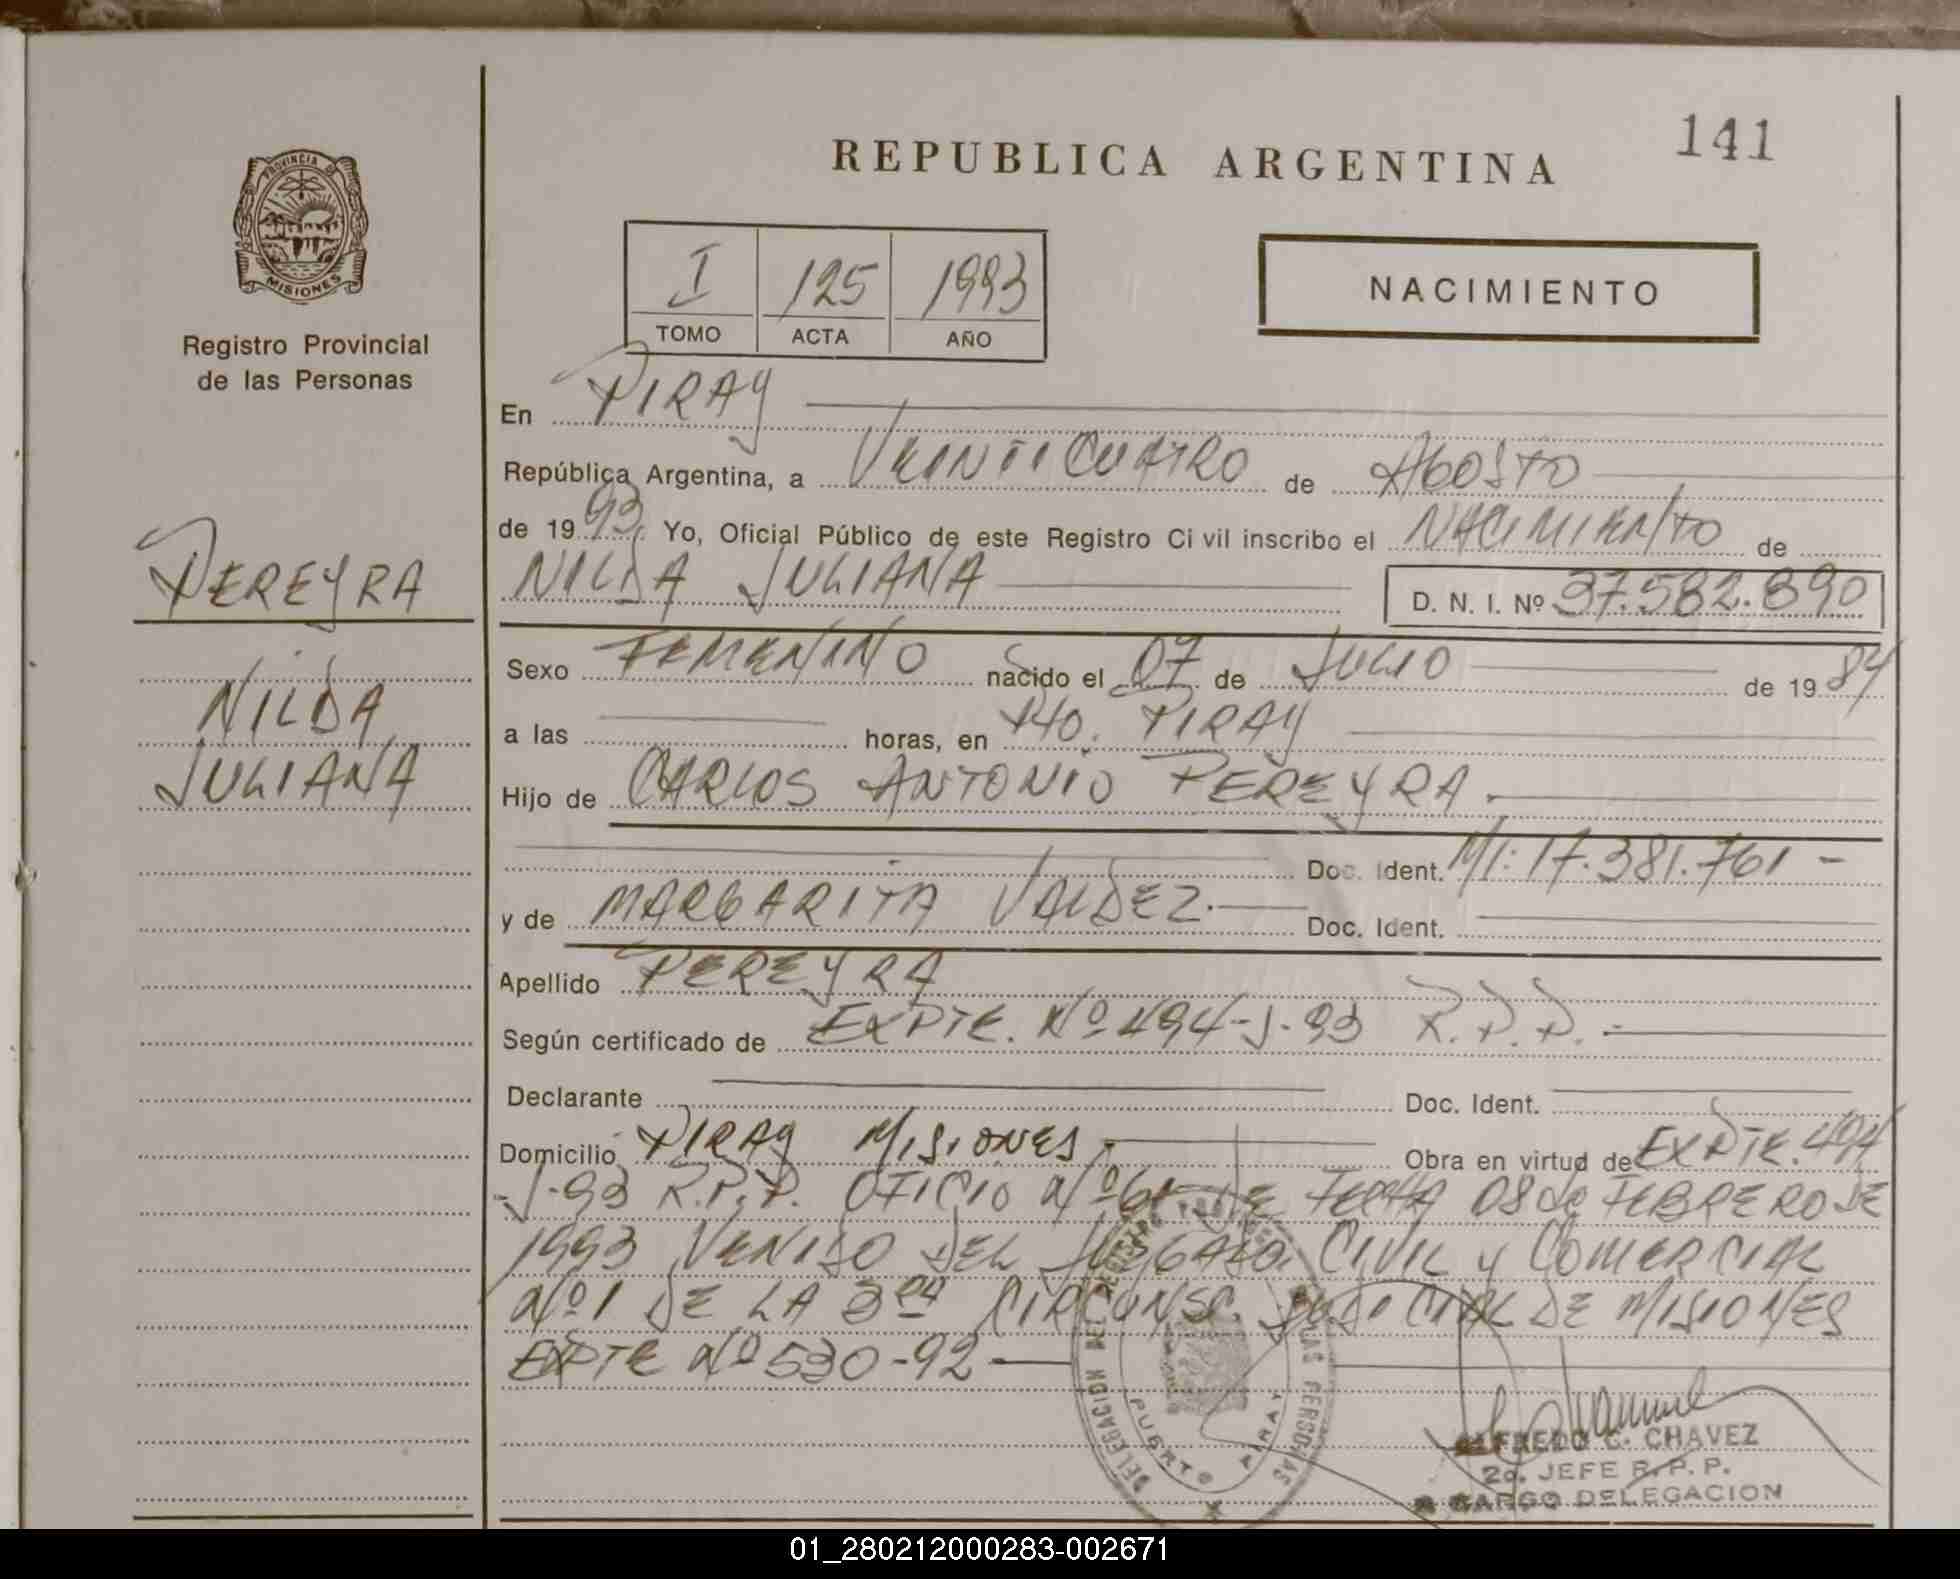 141
REPUBLICA ARGENTINA
PROVINCIA DE
MISIONES
Registro Provincial
de las Personas
I 125 1993
TOMO ACTA AÑO
NACIMIENTO
PEREYRA
NILDA
JULIANA
En PIRAY
República Argentina, a VEINTICUATRO de AGOSTO
de 1993. Yo, Oficial Público de este Registro Civil inscribo el NACIMIENTO de
NILDA JULIANA D. N. I. Nº 37.582.890
Sexo FEMENINO nacido el 07 de JULIO de 1984
a las horas, en Pto. PIRAY
Hijo de CARLOS ANTONIO PEREYRA.
Doc. Ident. MI: 17.381.761 -
y de MARGARITA VALDEZ.- Doc. Ident.
Apellido PEREYRA
Según certificado de EXPTE. Nº 494-J-93 R.P.P. -
Declarante Doc. Ident.
Domicilio PIRAY MISIONES. Obra en virtud de EXPTE. 494
-J-93 R.P.P. OFICIO Nº 61 DE FECHA 08 de FEBRERO DE
1993 VENIDO DEL JUZGADO CIVIL y COMERCIAL
Nº 1 DE LA 3ra CIRCUNSC. JUDICIAL DE MISIONES
EXPTE Nº 530-92 -
DELEGACION DEL REGISTRO PROVINCIAL DE LAS PERSONAS
PUERTO PIRAY
ALFREDO C. CHAVEZ
2o. JEFE R.P.P.
A CARGO DELEGACION
01_280212000283-002671